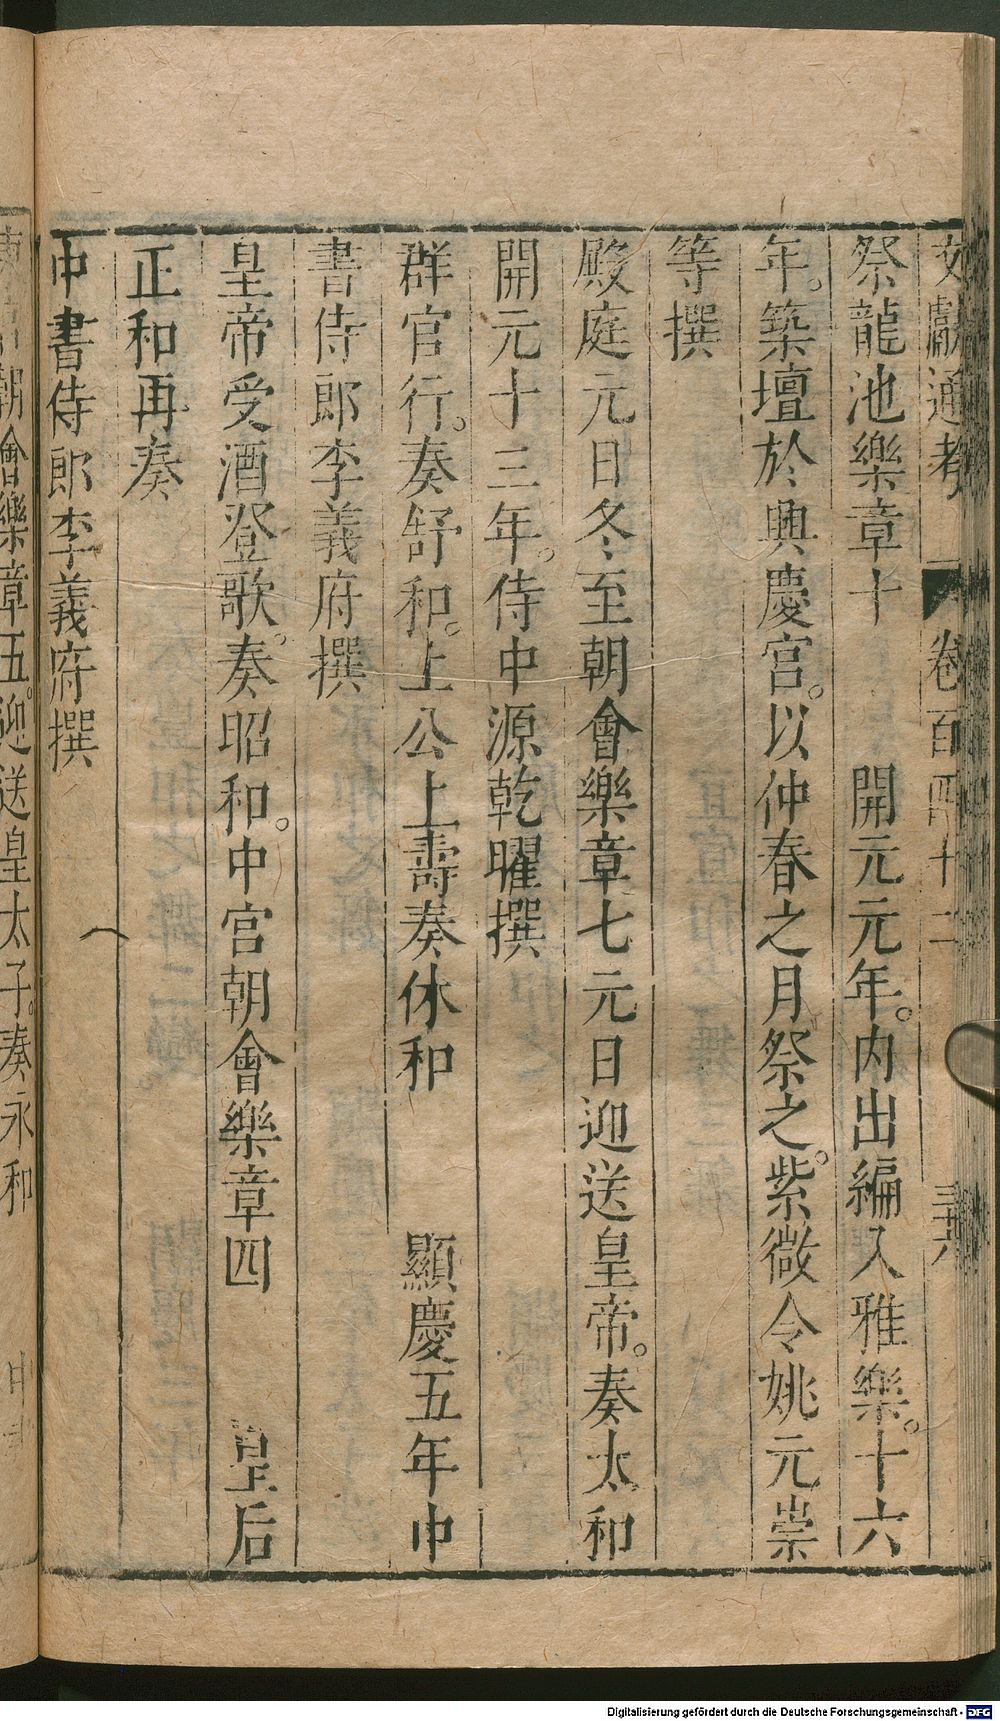 文獻通考 卷百四十二 三十六
祭龍池樂章十 開元元年。內出編入雅樂。十六
年。築壇於興慶宮。以仲春之月祭之。紫微令姚元崇
等撰
殿庭元日冬至朝會樂章七元日迎送皇帝。奏太和
開元十三年。侍中源乾曜撰
群官行。奏舒和。上公上壽奏休和 顯慶五年中
書侍郎李義府撰
皇帝受酒登歌。奏昭和。中宮朝會樂章四 皇后
正和再奏
中書侍郎李義府撰
朝會樂章五。迎送皇太子。奏永和
Digitalisierung gefördert durch die Deutsche Forschungsgemeinschaft - DFG